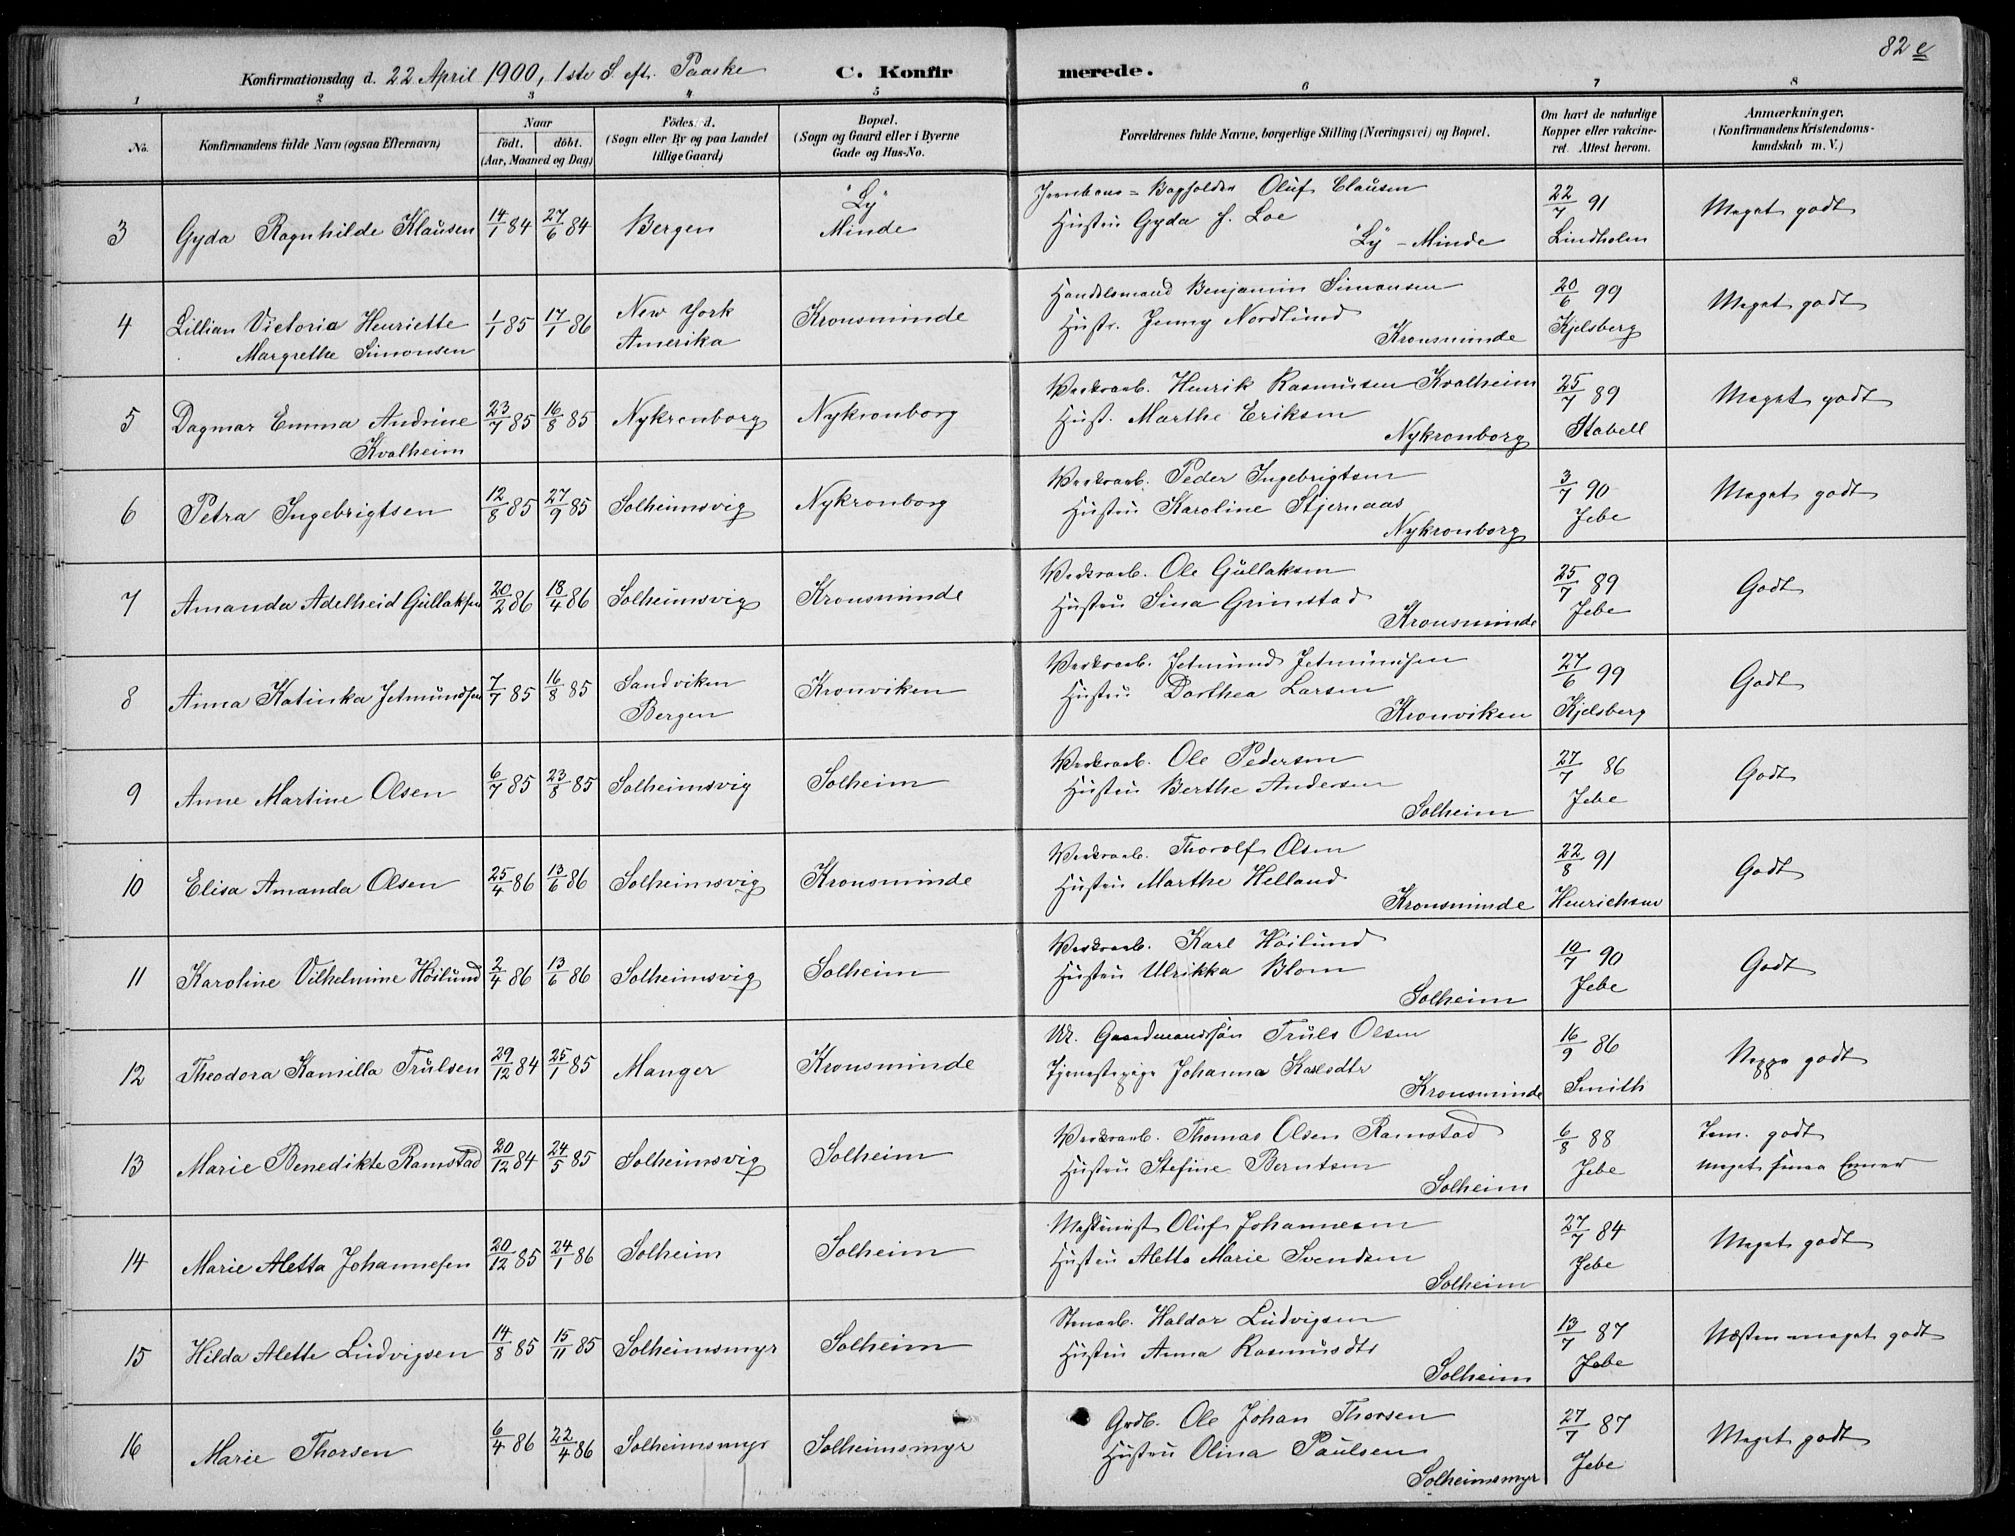 82 e
Konfirmationsdag d. 22 April 1900, 1ste S. eft. Paaske C. Konfirmerede.
1 2 3 4 5 6 7 8
No. Konfirmandens fulde Navn (ogsaa Efternavn) Naar født. døbt. (Aar, Maaned og Dag) Fødested. (Sogn eller By og paa Landet tillige Gaard) Bopæl. (Sogn og Gaard eller i Byerne Gade og Hus-No. Forældrenes fulde Navne, borgerlige Stilling (Næringsvei) og Bopæl. Om havt de naturlige Kopper eller vakcineret. Attest herom. Anmærkninger. (Konfirmandens Kristendomskundskab m. V.)
3 Gyda Ragnhilde Klausen 14/1 84 27/6 84 Bergen "Ly" Minde Oluf Clausen 22/7 91 Meget godt
Hustru Gyda f. Loe "Ly" - Minde Lindholm
4 Lillian Victoria Henriette 1/1 85 17/1 86 New York Kronsminde Handelsmand Benjamin Simonsen 20/6 99 Meget godt
Margrethe Simonsen Amerika Hustr. Jenny Nordlund Kronsminde Kjelsberg
5 Dagmar Emma Andrine 23/7 85 16/8 85 Nykronborg Nykronborg Værksarb. Henrik Rasmussen Kvalheim 25/7 89 Meget godt
Kvalheim Hust. Marthe Eriksen Nykronborg Stabell
6 Petra Ingebrigtsen 12/8 85 27/9 85 Solheimsvig Nykronborg Værksarb. Peder Ingebrigtsen 3/7 90 Meget godt
Hustru Karoline Stjernaas Nykronborg Jebe
7 Amanda Adelheid Gullaksen 20/2 86 18/4 86 Solheimsvig Kronsminde Værksarb. Ole Gullaksen 25/7 89 Godt
Hustru Sina Grimstad Kronsminde Jebe
8 Anna Katinka Jetmundsen 7/7 85 16/8 85 Sandviken Kronviken Værksarb. Jetmund Jetmundsen 27/6 99 Godt
Bergen Hustru Dorthea Larsen Kronviken Kjelsberg
9 Anne Martine Olsen 6/7 85 23/8 85 Solheimsvig Solheim Værksarb. Ole Pedersen 27/7 86 Godt
Hustru Berthe Andersen Solheim Jebe
10 Elisa Amanda Olsen 25/4 86 13/6 86 Solheimsvig Kronsminde Værksarb. Thorolf Olsen 22/8 91 Godt
Hustru Marthe Helland Kronsminde Henrichsen
11 Karoline Vilhelmine Höilund 2/4 86 13/6 86 Solheimsvig Solheim Værksarb. Karl Höilund 10/7 90 Godt
Hustru Ulrikka Blom Solheim Jebe
12 Theodora Kamilla Trulsen 29/12 84 25/1 85 Manger Kronsminde Uæ. Gaardmandssøn Truls Olsen 16/9 86 Neppe godt
Tjenestepige Johanna Karlsdtr Kronsminde Smith
13 Marie Benedikte Ramstad 20/12 84 24/5 85 Solheimsvig Solheim Værksarb. Thomas Olsen Ramstad 6/8 88 Tem. godt
Hustru Stefine Berntsen Solheim Jebe meget smaa Evner
14 Marie Aletta Johannesen 20/12 85 24/1 86 Solheim Solheim Maskinist Oluf Johannesen 27/7 84 Meget godt
Hustru Aletta Marie Svendsen Solheim Jebe
15 Hilda Alette Ludvigsen 14/8 85 15/11 85 Solheimsmyr Solheim Stenarb. Haldor Ludvigsen 13/7 87 Næsten meget godt
Hustru Anna Rasmusdtr Solheim Jebe
16 Marie Thorsen 6/4 86 22/4 86 Solheimsmyr Solheimsmyr Grdb. Ole Johan Thorsen 27/7 87 Meget godt
Hustru Olina Paulsen Solheimsmyr Jebe